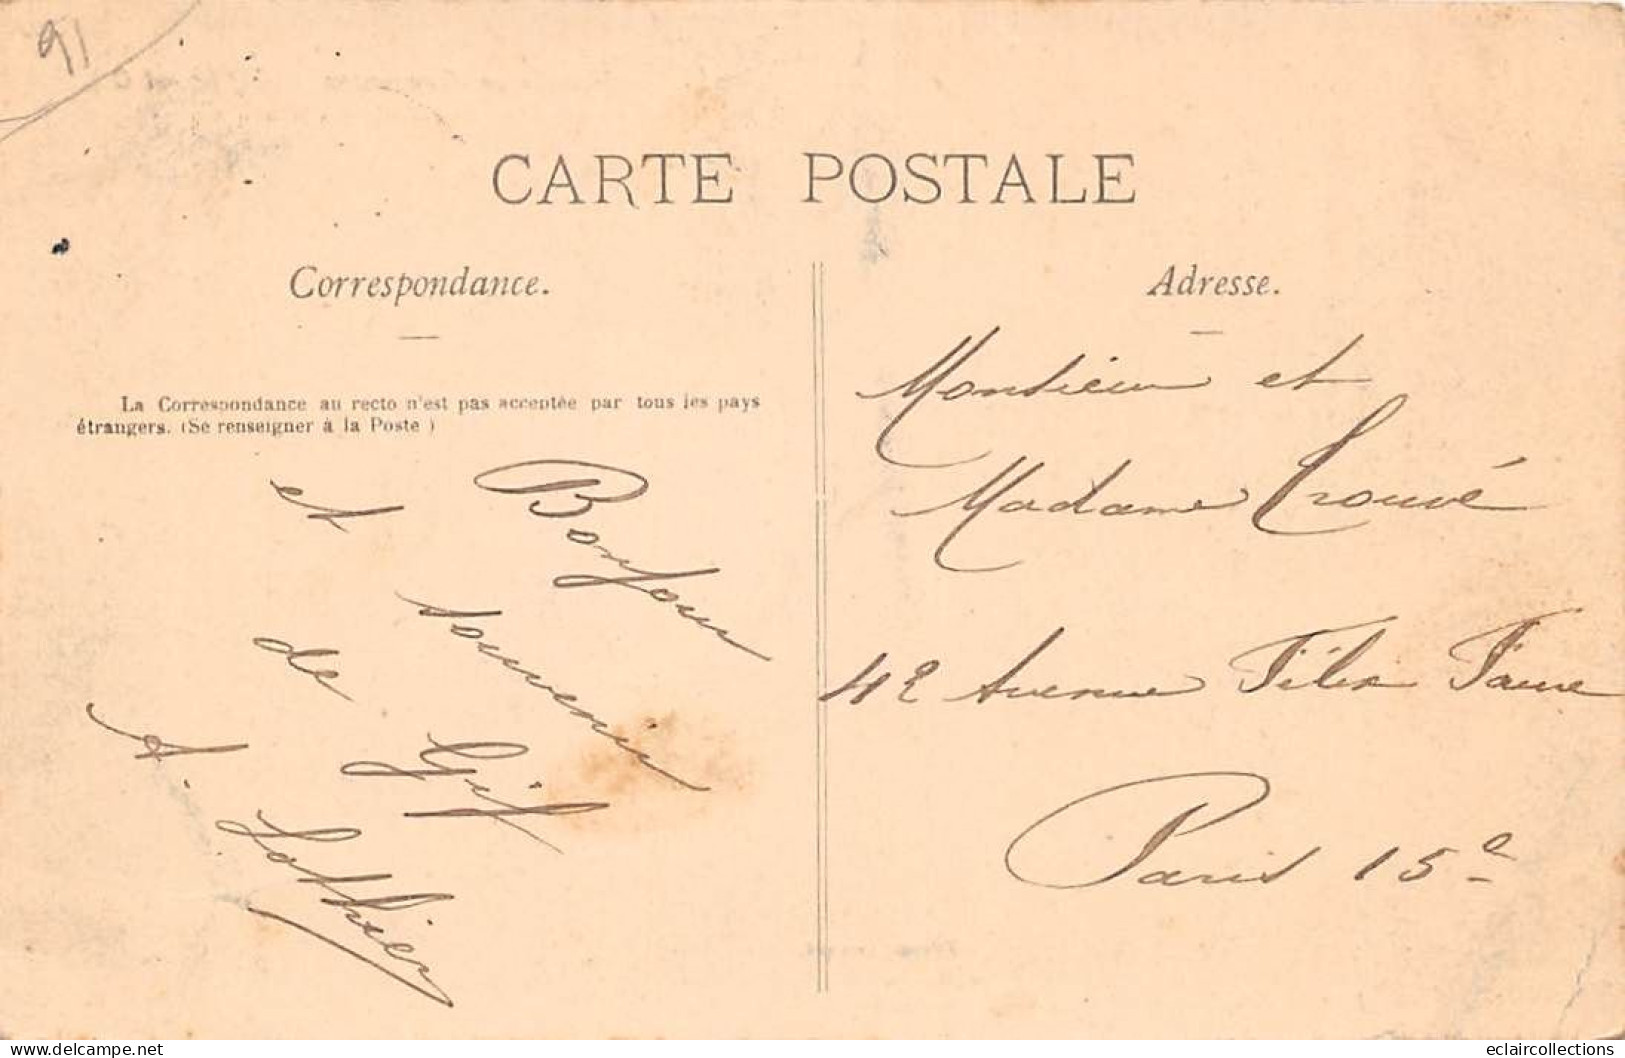 91
CARTE POSTALE
Correspondance.
La Correspondance au recto n'est pas acceptée par tous les pays
étrangers. (Se renseigner à la Poste )
Bonjour
et souvenir
de Gif
A. Lothier
Adresse.
Monsieur et
Madame Trouvé
42 Avenue Félix Faure
Paris 15e
www.delcampe.net
eclaircollections